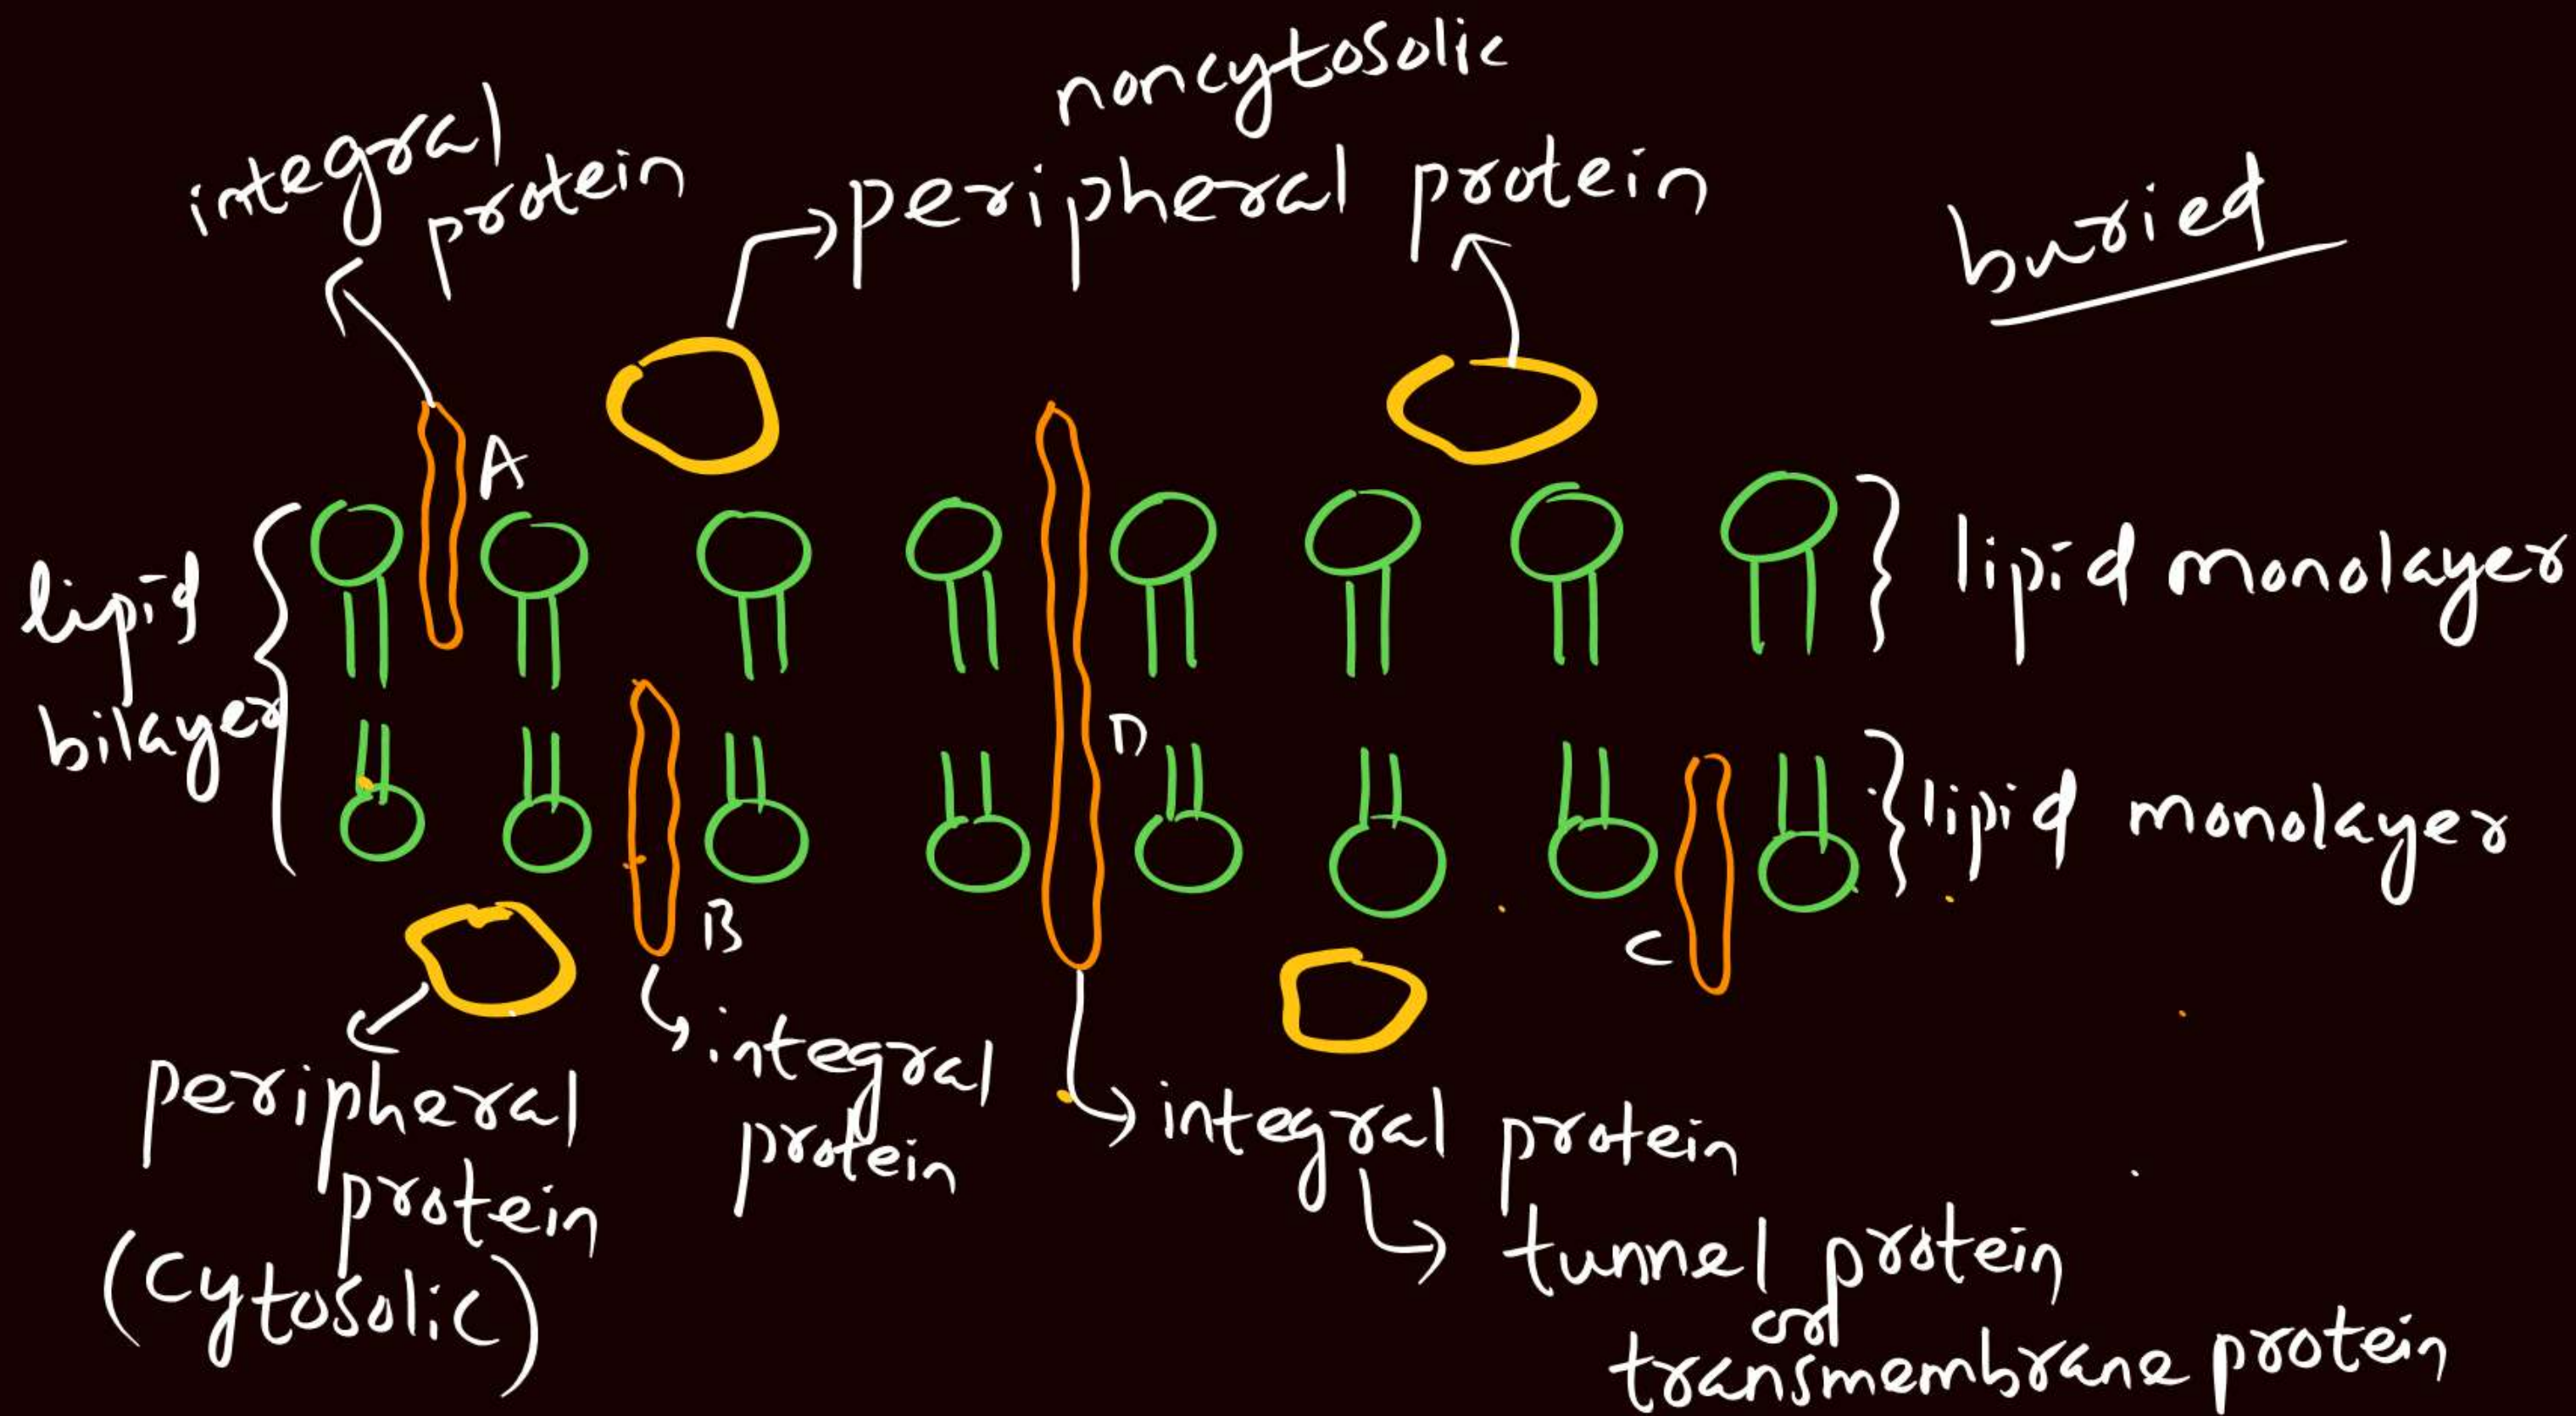 noncytosolic
integral
protein
peripheral protein
buried
A
lipid
bilayer
lipid monolayer
D
lipid monolayer
B
C
peripheral
protein
(cytosolic)
integral
protein
integral protein
tunnel protein
or
transmembrane protein